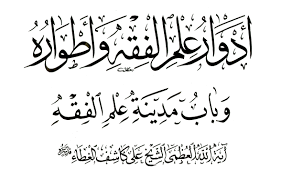 أَدْوَارُ عِلْمِ الْفِقْهِ وَأَطْوَارُهُ
وَبَابُ مَدِينَةِ عِلْمِ الْفِقْهِ
آية الله العظمى الشيخ علي كاشف الغطاء